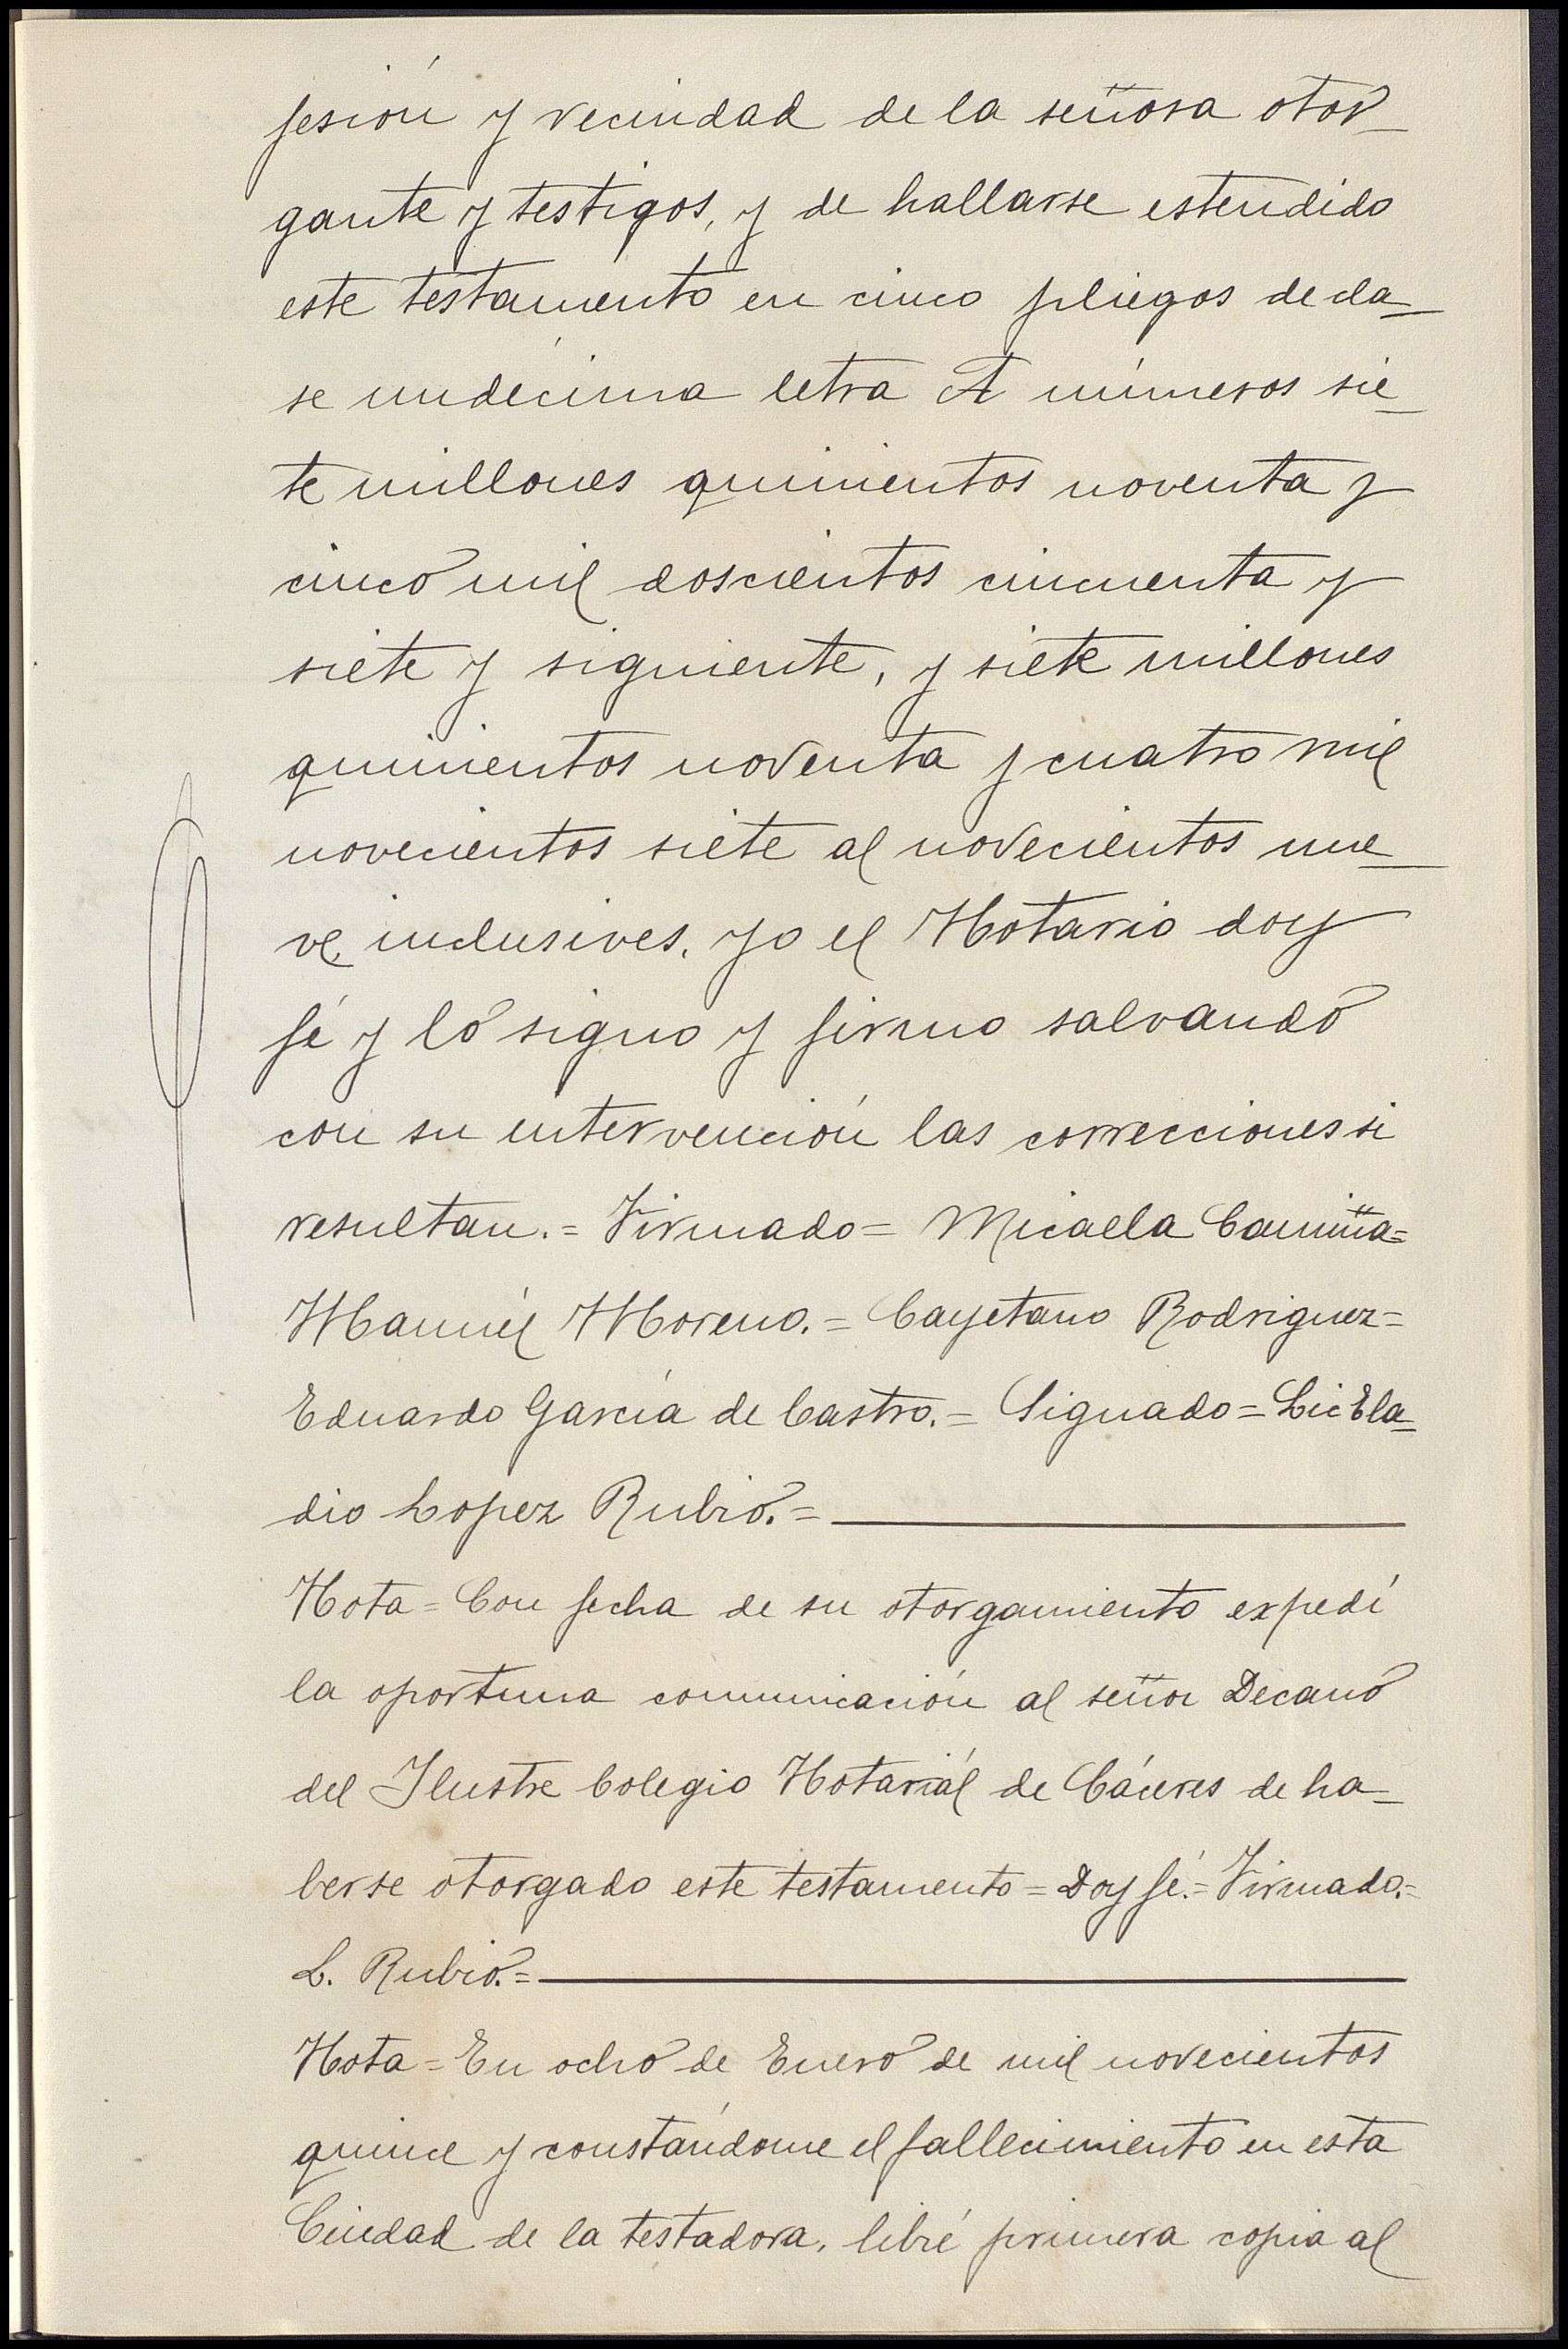 fesión y vecindad de la señora otor-
gante y testigos, y de hallarse estendido
este testamento en cinco pliegos de cla-
se undécima letra A números sie-
te millones quinientos noventa y
cinco mil doscientos cincuenta y
siete y siguiente, y siete millones
quinientos noventa y cuatro mil
novecientos siete al novecientos nue-
ve, inclusives, yo el Notario doy
fé y lo signo y firmo salvando
con su intervención las correcciones si
resultan.= Firmado= Micaela Camiña=
Manuel Moreno.= Cayetano Rodriguez=
Eduardo García de Castro.= Signado= Lic Ela-
dio Lopez Rubio.=
Nota= Con fecha de su otorgamiento expedí
la oportuna comunicación al señor Decano
del Ilustre Colegio Notariál de Cáceres de ha-
berse otorgado este testamento= Doy fé.= Firmado.=
L. Rubio.=
Nota= En ocho de Enero de mil novecientos
quince y constándome el fallecimiento en esta
Ciudad de la testadora, libré primera copia al